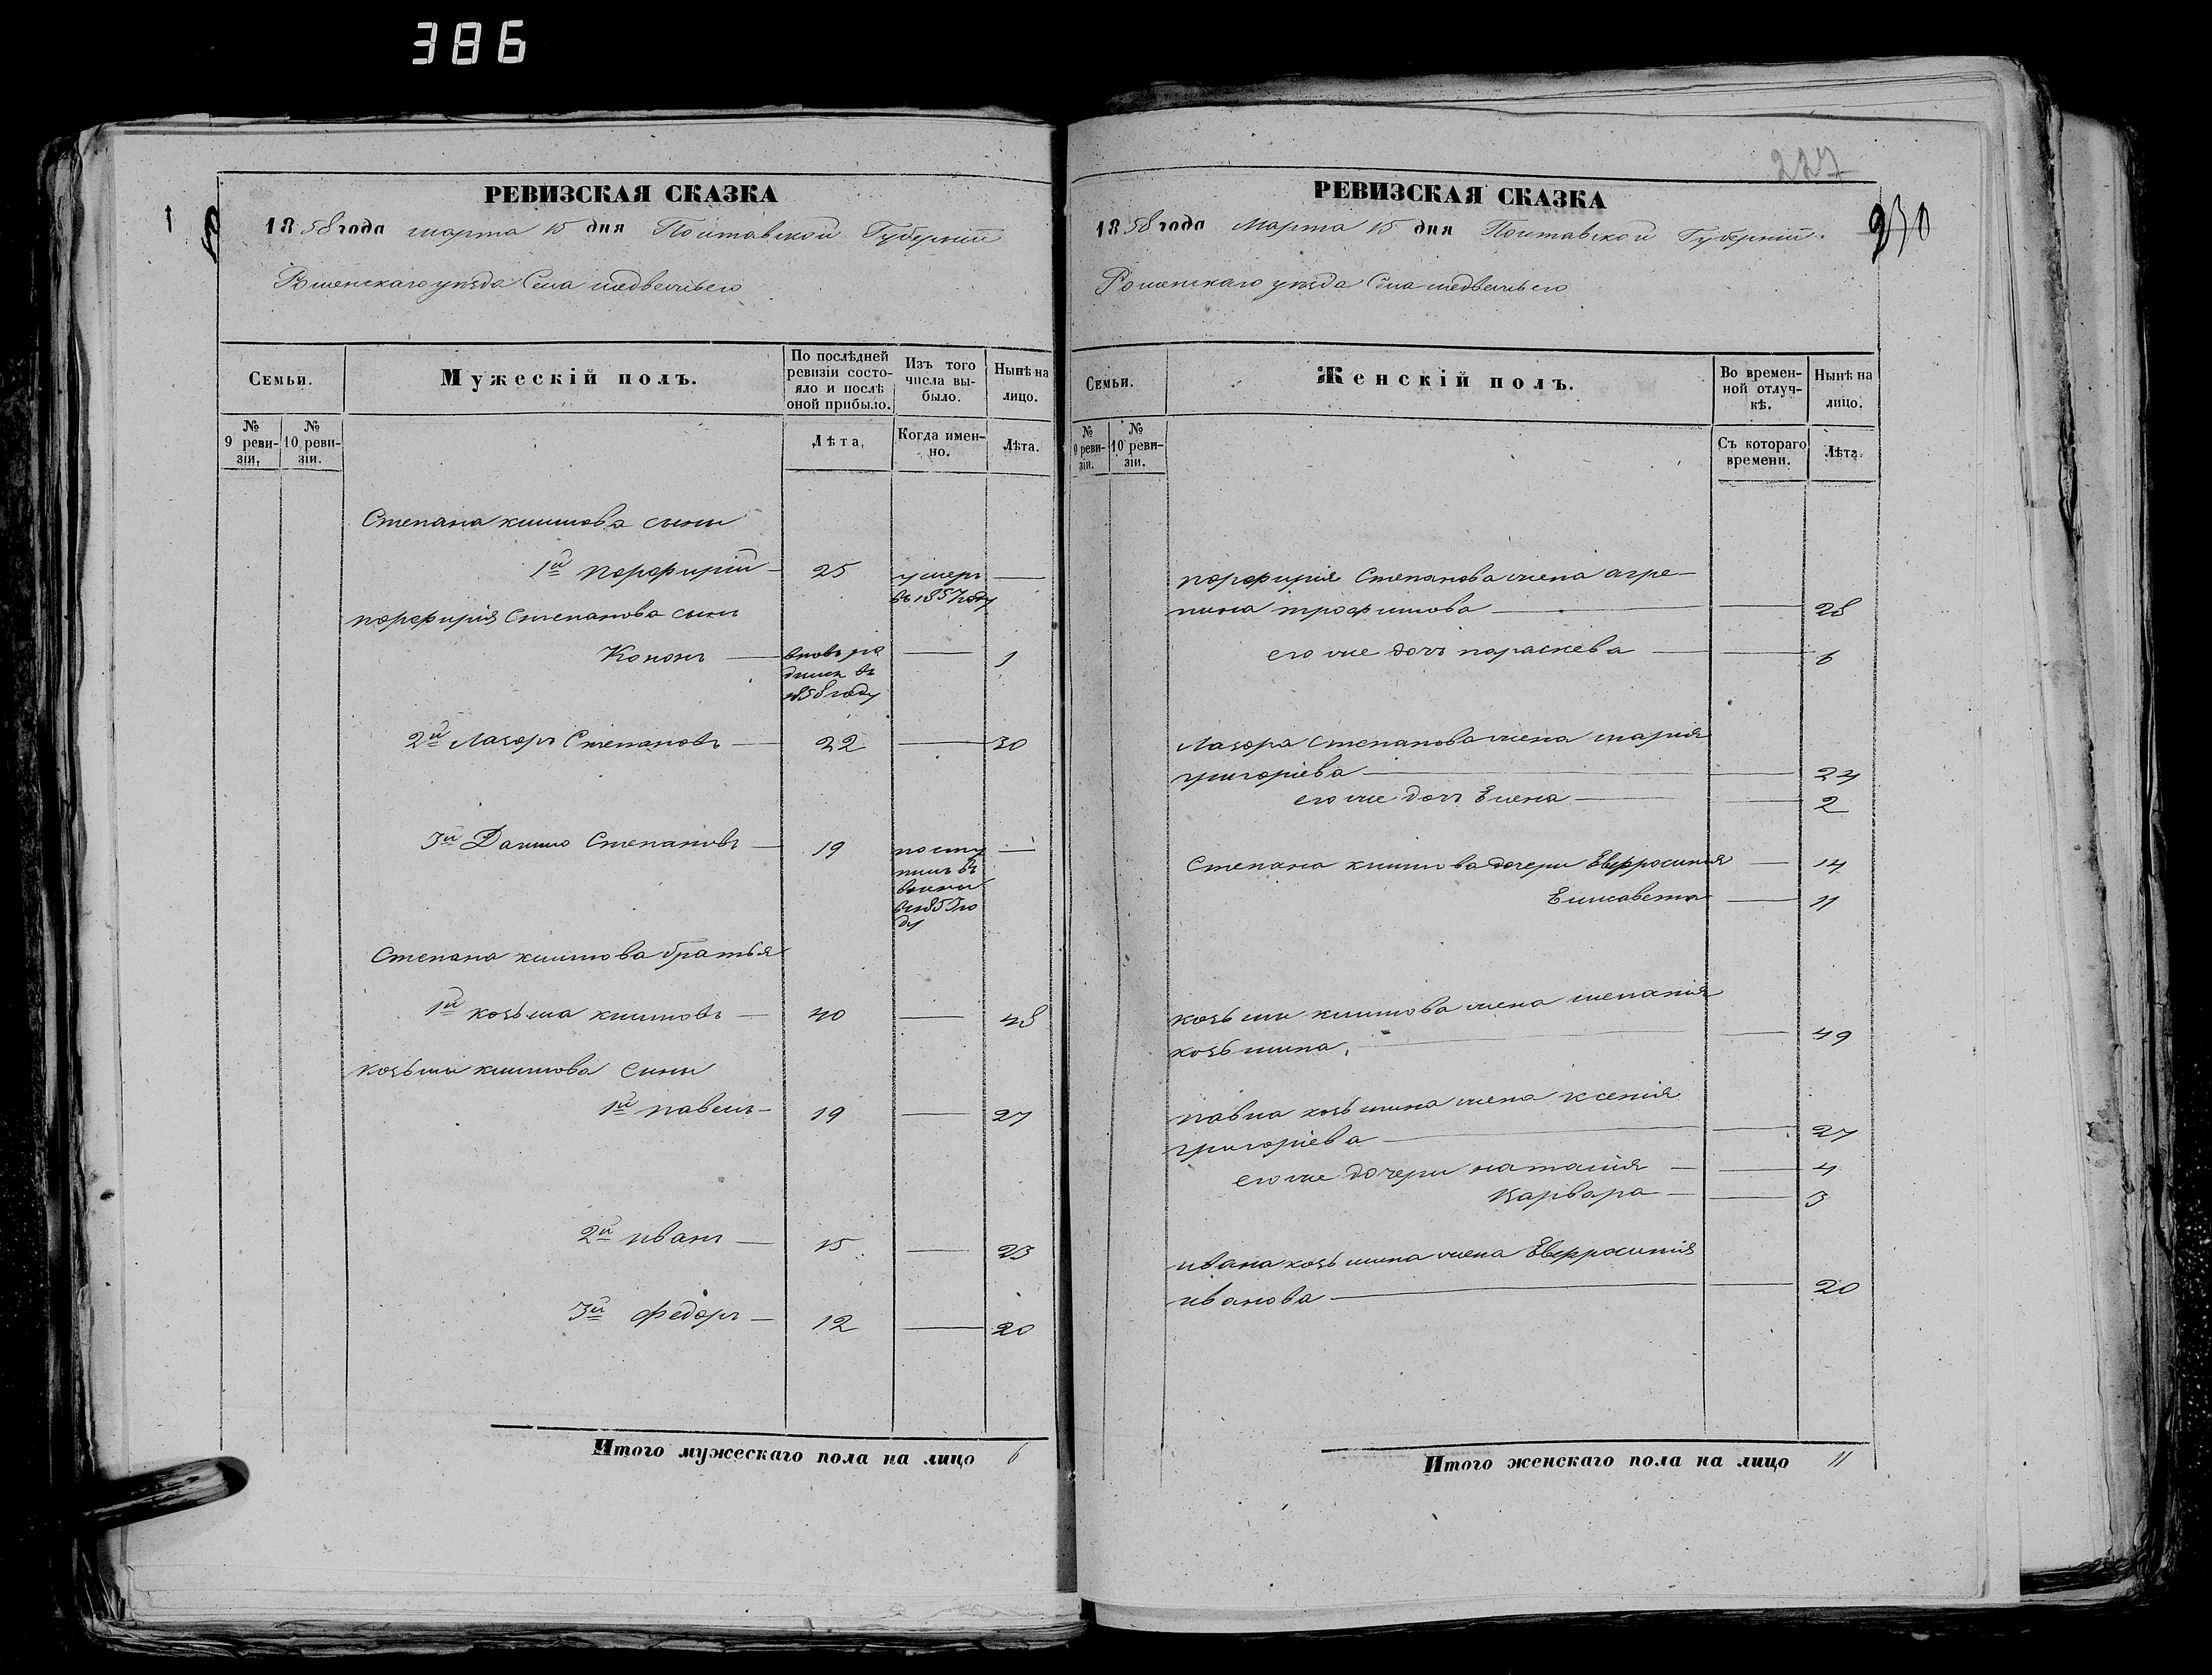 386
РЕВИЗСКАЯ СКАЗКА
1858 года марта 15 дня Полтавской Губерніи
Роменскаго уезда Села медвежьего
Семьи.
Мужескій полъ.
По послѣдней ревизіи состо-
яло и послѣ оной прибыло.
Изъ того числа вы-
было.
Нынѣ на лицо.
№ 9 реви-
зіи.
№ 10 реви-
зіи.
Лѣта.
Когда имен-
но.
Лѣта.
Степана климова сыны
1й порфирій 25 умеръ
въ 1857 году
порфирія Степанова сынъ
Кононъ вновь ро 1
дился въ
1858 году
2й Лазорь Степановъ 22 30
3й Данило Степановъ 19 посту
пилъ въ
воины
въ 1855 го
ду
Степана климова братья
1й козьма климовъ 40 48
козьмы климова сыны
1й павелъ 19 27
2й иванъ 15 23
3й федоръ 12 20
Итого мужескаго пола на лицо 6
227
230
РЕВИЗСКАЯ СКАЗКА
1858 года Марта 15 дня Полтавской Губерніи
Роменскаго уезда Села медвежьего
Семьи.
Женскій полъ.
Во времен-
ной отлуч-
кѣ.
Нынѣ на лицо.
№ 9 реви-
зіи.
№ 10 реви-
зіи.
Съ котораго времени.
Лѣта.
порфирія Степанова жена агре-
пина трофимова 28
его же дочь параскева 6
Лазора Степанова жена марія
григоріева 24
его же дочь Елена 2
Степана климова дочери Евфросинія 14
Елисавета 11
козьмы климова жена меланія
козьмина 49
павла козьмина жена ксенія
григоріева 27
его же дочери наталія 4
Варвара 3
ивана козьмина жена Евфросинія
иванова 20
Итого женскаго пола на лицо 11